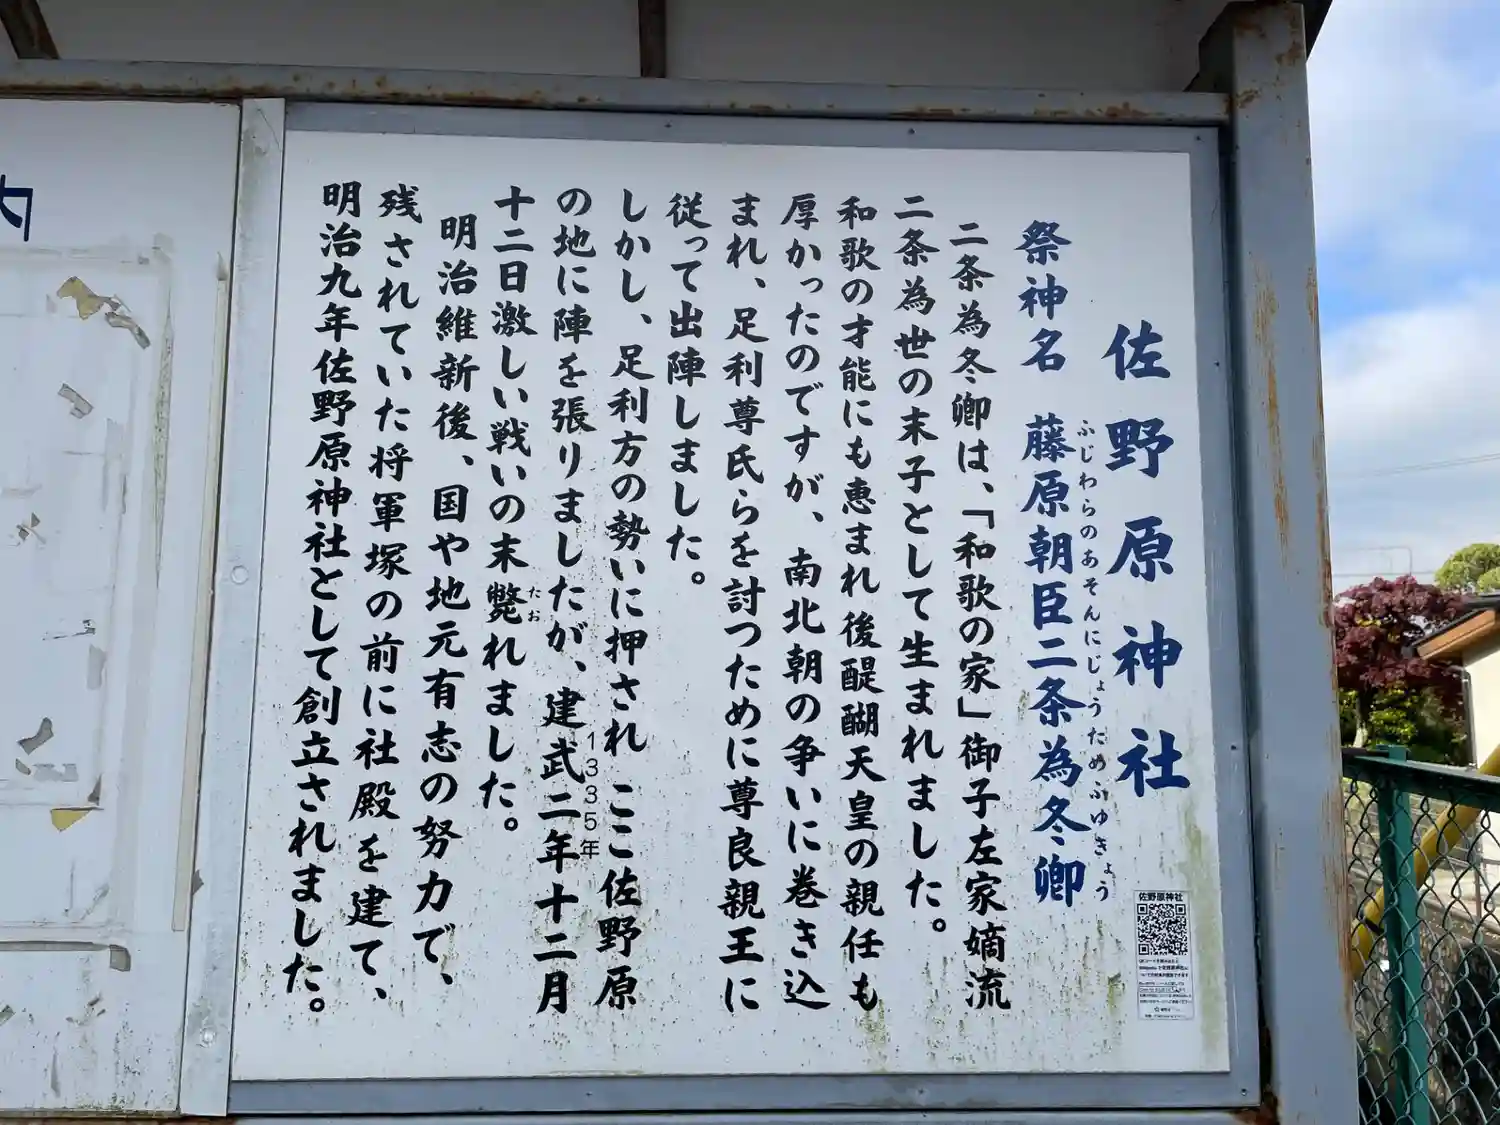 佐野原神社
祭神名 藤原朝臣二条為冬卿
ふじわらのあそんにじょうためふゆきょう
二条為冬卿は、「和歌の家」御子左家嫡流
二条為世の末子として生まれました。
和歌の才能にも恵まれ後醍醐天皇の親任も
厚かったのですが、南北朝の争いに巻き込
まれ、足利尊氏らを討つために尊良親王に
従って出陣しました。
しかし、足利方の勢いに押され ここ佐野原
の地に陣を張りましたが、建武二年十二月
1335年
十二日激しい戦いの末斃れました。
たお
明治維新後、国や地元有志の努力で、
残されていた将軍塚の前に社殿を建て、
明治九年佐野原神社として創立されました。
佐野原神社
内